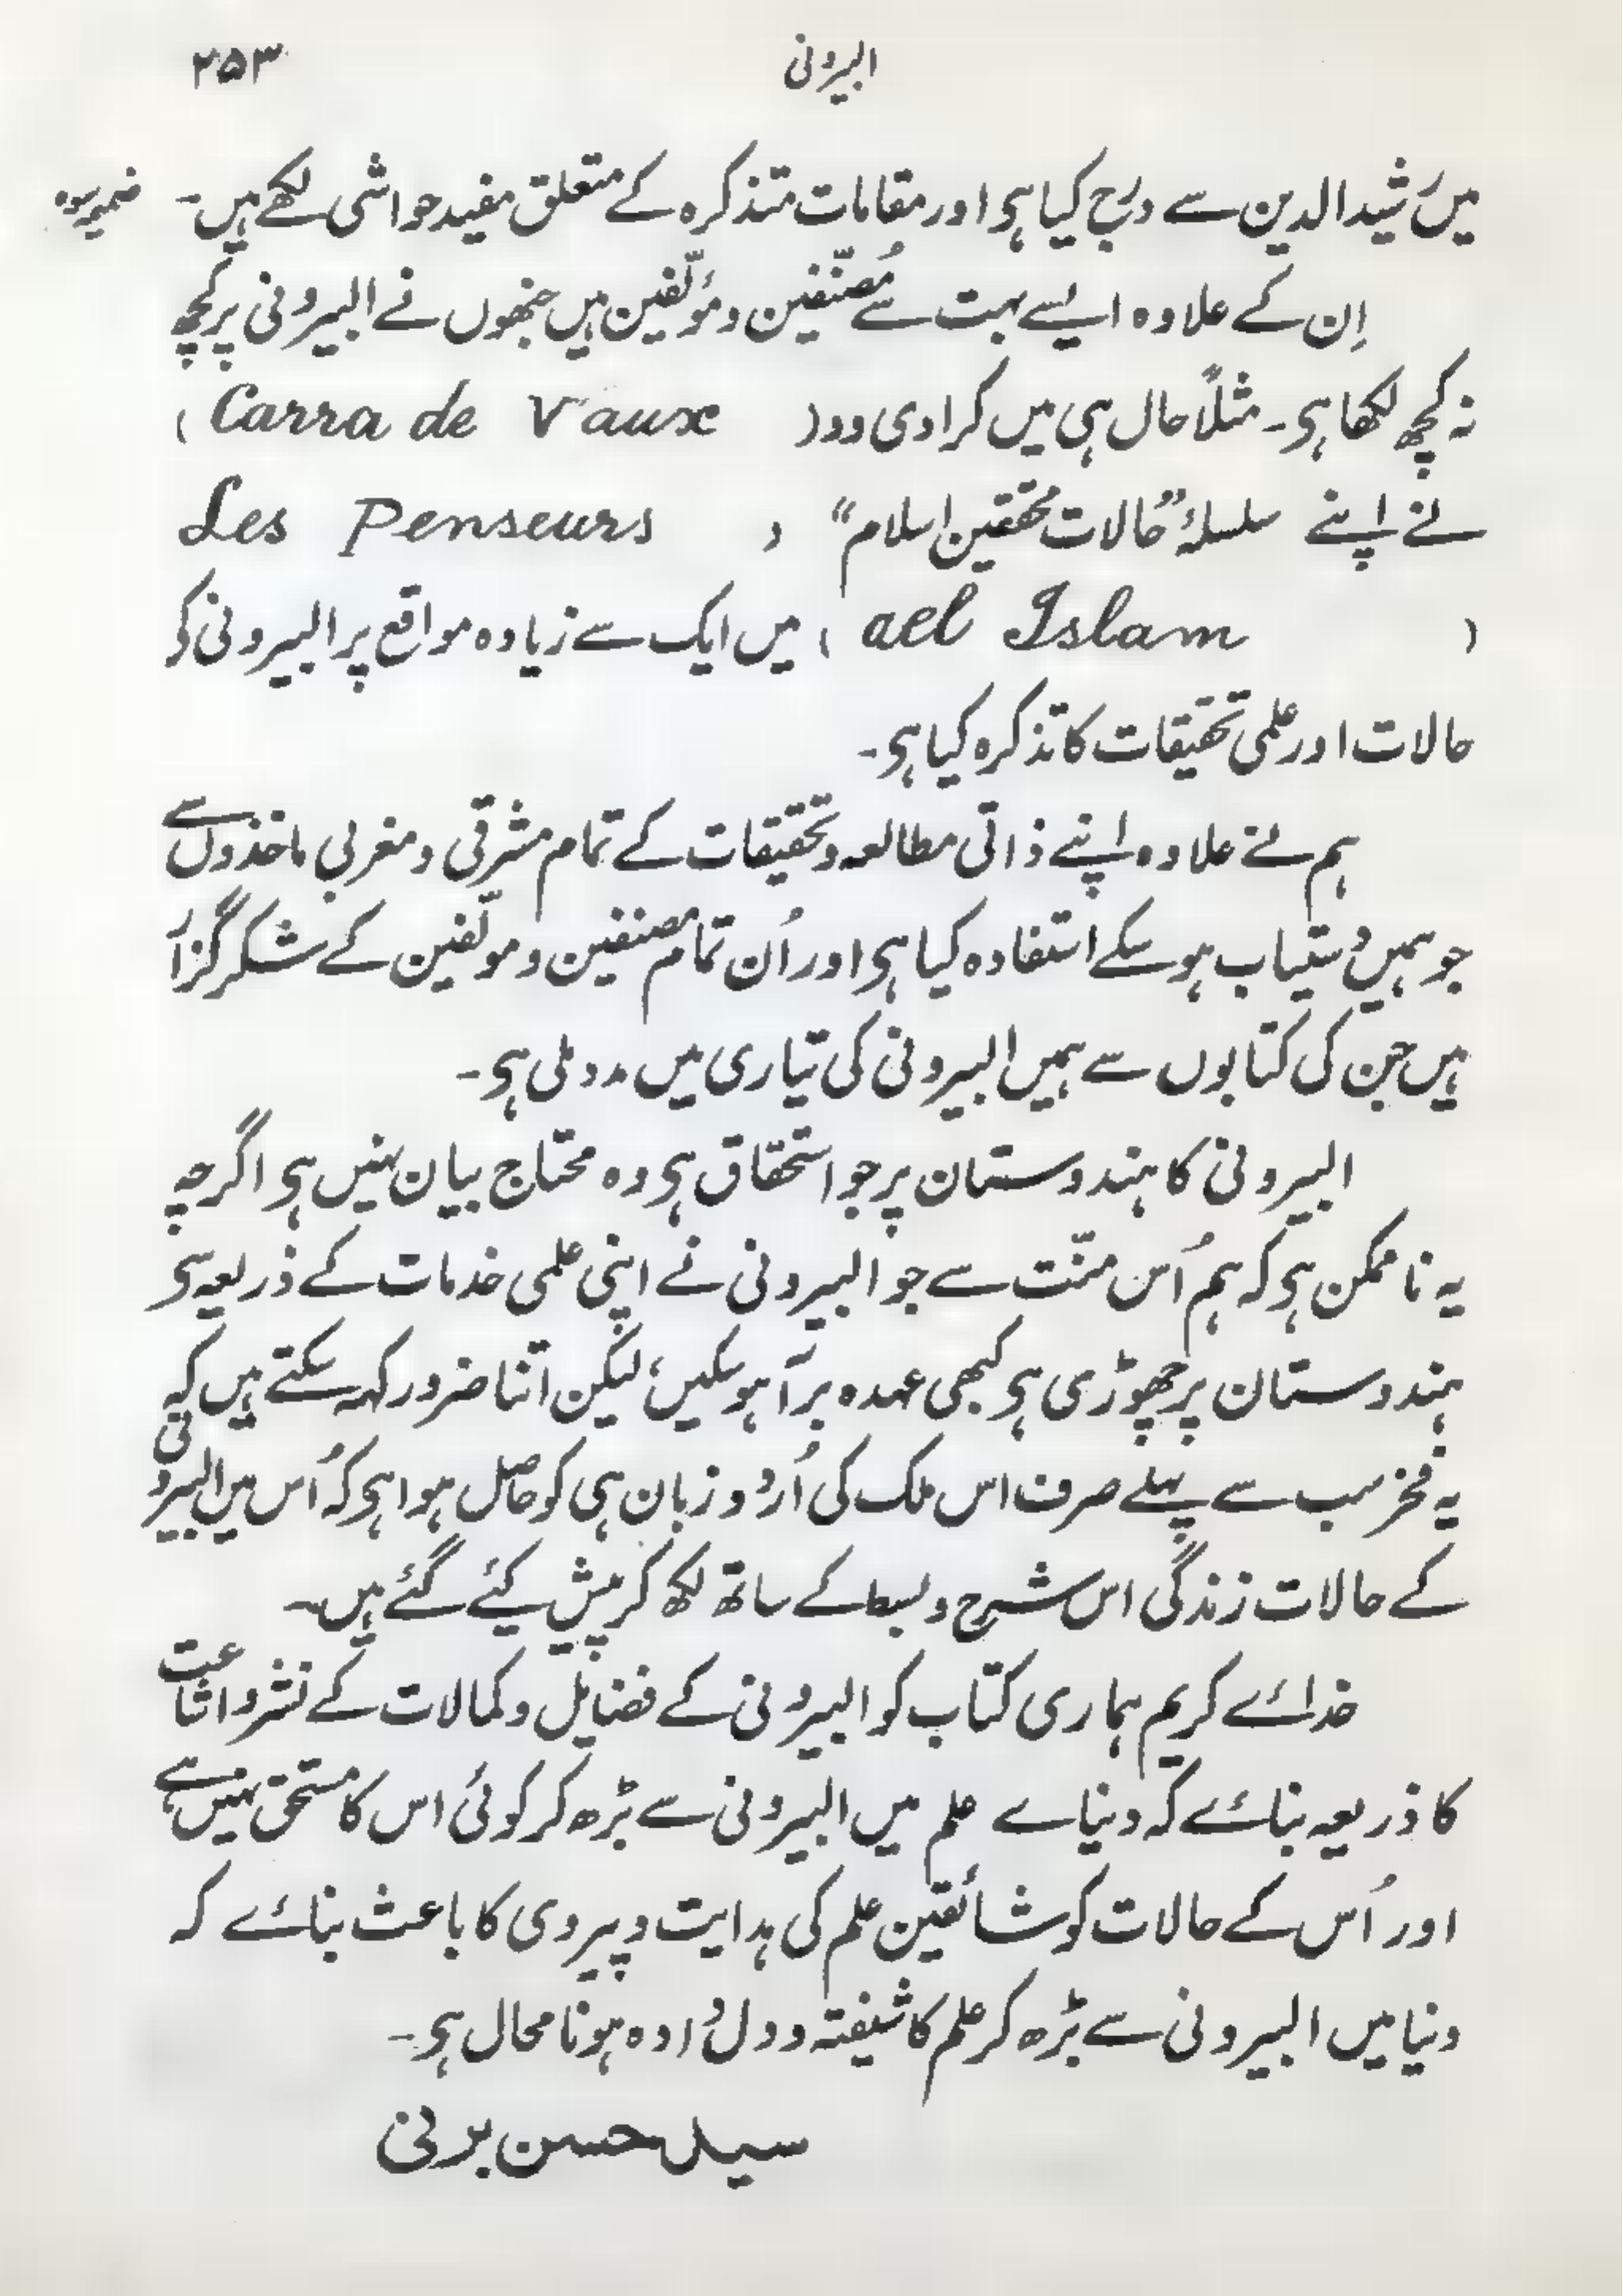 البیرونی ۲۵۳
میں رشید الدین سے درج کیا ہی اور مقامات متذکرہ کے متعلق مفید حواشی لکھے ہیں۔
ضمیمہ سوم
اِن کے علاوہ ایسے بہت سے مُصنّفین و مؤلّفین ہیں جنھوں نے البیرونی پر کچھ
نہ کچھ لکھا ہی۔ مثلاً حال ہی میں کرادی وو( Carra de Vaux )
نے اپنے سلسلۂ ”حالات محققین اسلام“ ( Les Penseurs
( ael Islam ) میں ایک سے زیادہ مواقع پر البیرونی کی
حالات اور علمی تحقیقات کا تذکرہ کیا ہی۔
ہم نے علاوہ اپنے ذاتی مطالعہ و تحقیقات کے تمام مشرقی و مغربی ماخذوں سے
جو ہمیں دستیاب ہو سکے استفادہ کیا ہی اور اُن تمام مصنفین و مولّفین کے شکر گزار
ہیں جن کی کتابوں سے ہمیں البیرونی کی تیاری میں مدد ملی ہی۔
البیرونی کا ہندوستان پر جو استحقاق ہی وہ محتاج بیان نہیں ہی اگرچہ
یہ ناممکن ہی کہ ہم اُس منّت سے جو البیرونی نے اپنی علمی خدمات کے ذریعہ سی
ہندوستان پر چھوڑی ہی کبھی عہدہ برآ ہو سکیں؛ لیکن اتنا ضرور کہہ سکتے ہیں کہ
یہ فخر سب سے پہلے صرف اس ملک کی اُردو زبان ہی کو حاصل ہوا ہی کہ اُس میں البیرونی
کے حالات زندگی اس شرح و بسط کے ساتھ لکھ کر پیش کیئے گئے ہیں۔
خدائے کریم ہماری کتاب کو البیرونی کے فضایل و کمالات کے نشر و اشاعت
کا ذریعہ بنائے کہ دنیاے علم میں البیرونی سے بڑھ کر کوئی اس کا مستحق نہیں ہے
اور اُس کے حالات کو شائقین علم کی ہدایت و پیروی کا باعث بنائے کہ
دنیا میں البیرونی سے بڑھ کر علم کا شیفتہ و دل دادہ ہونا محال ہی۔
سید حسن برنی